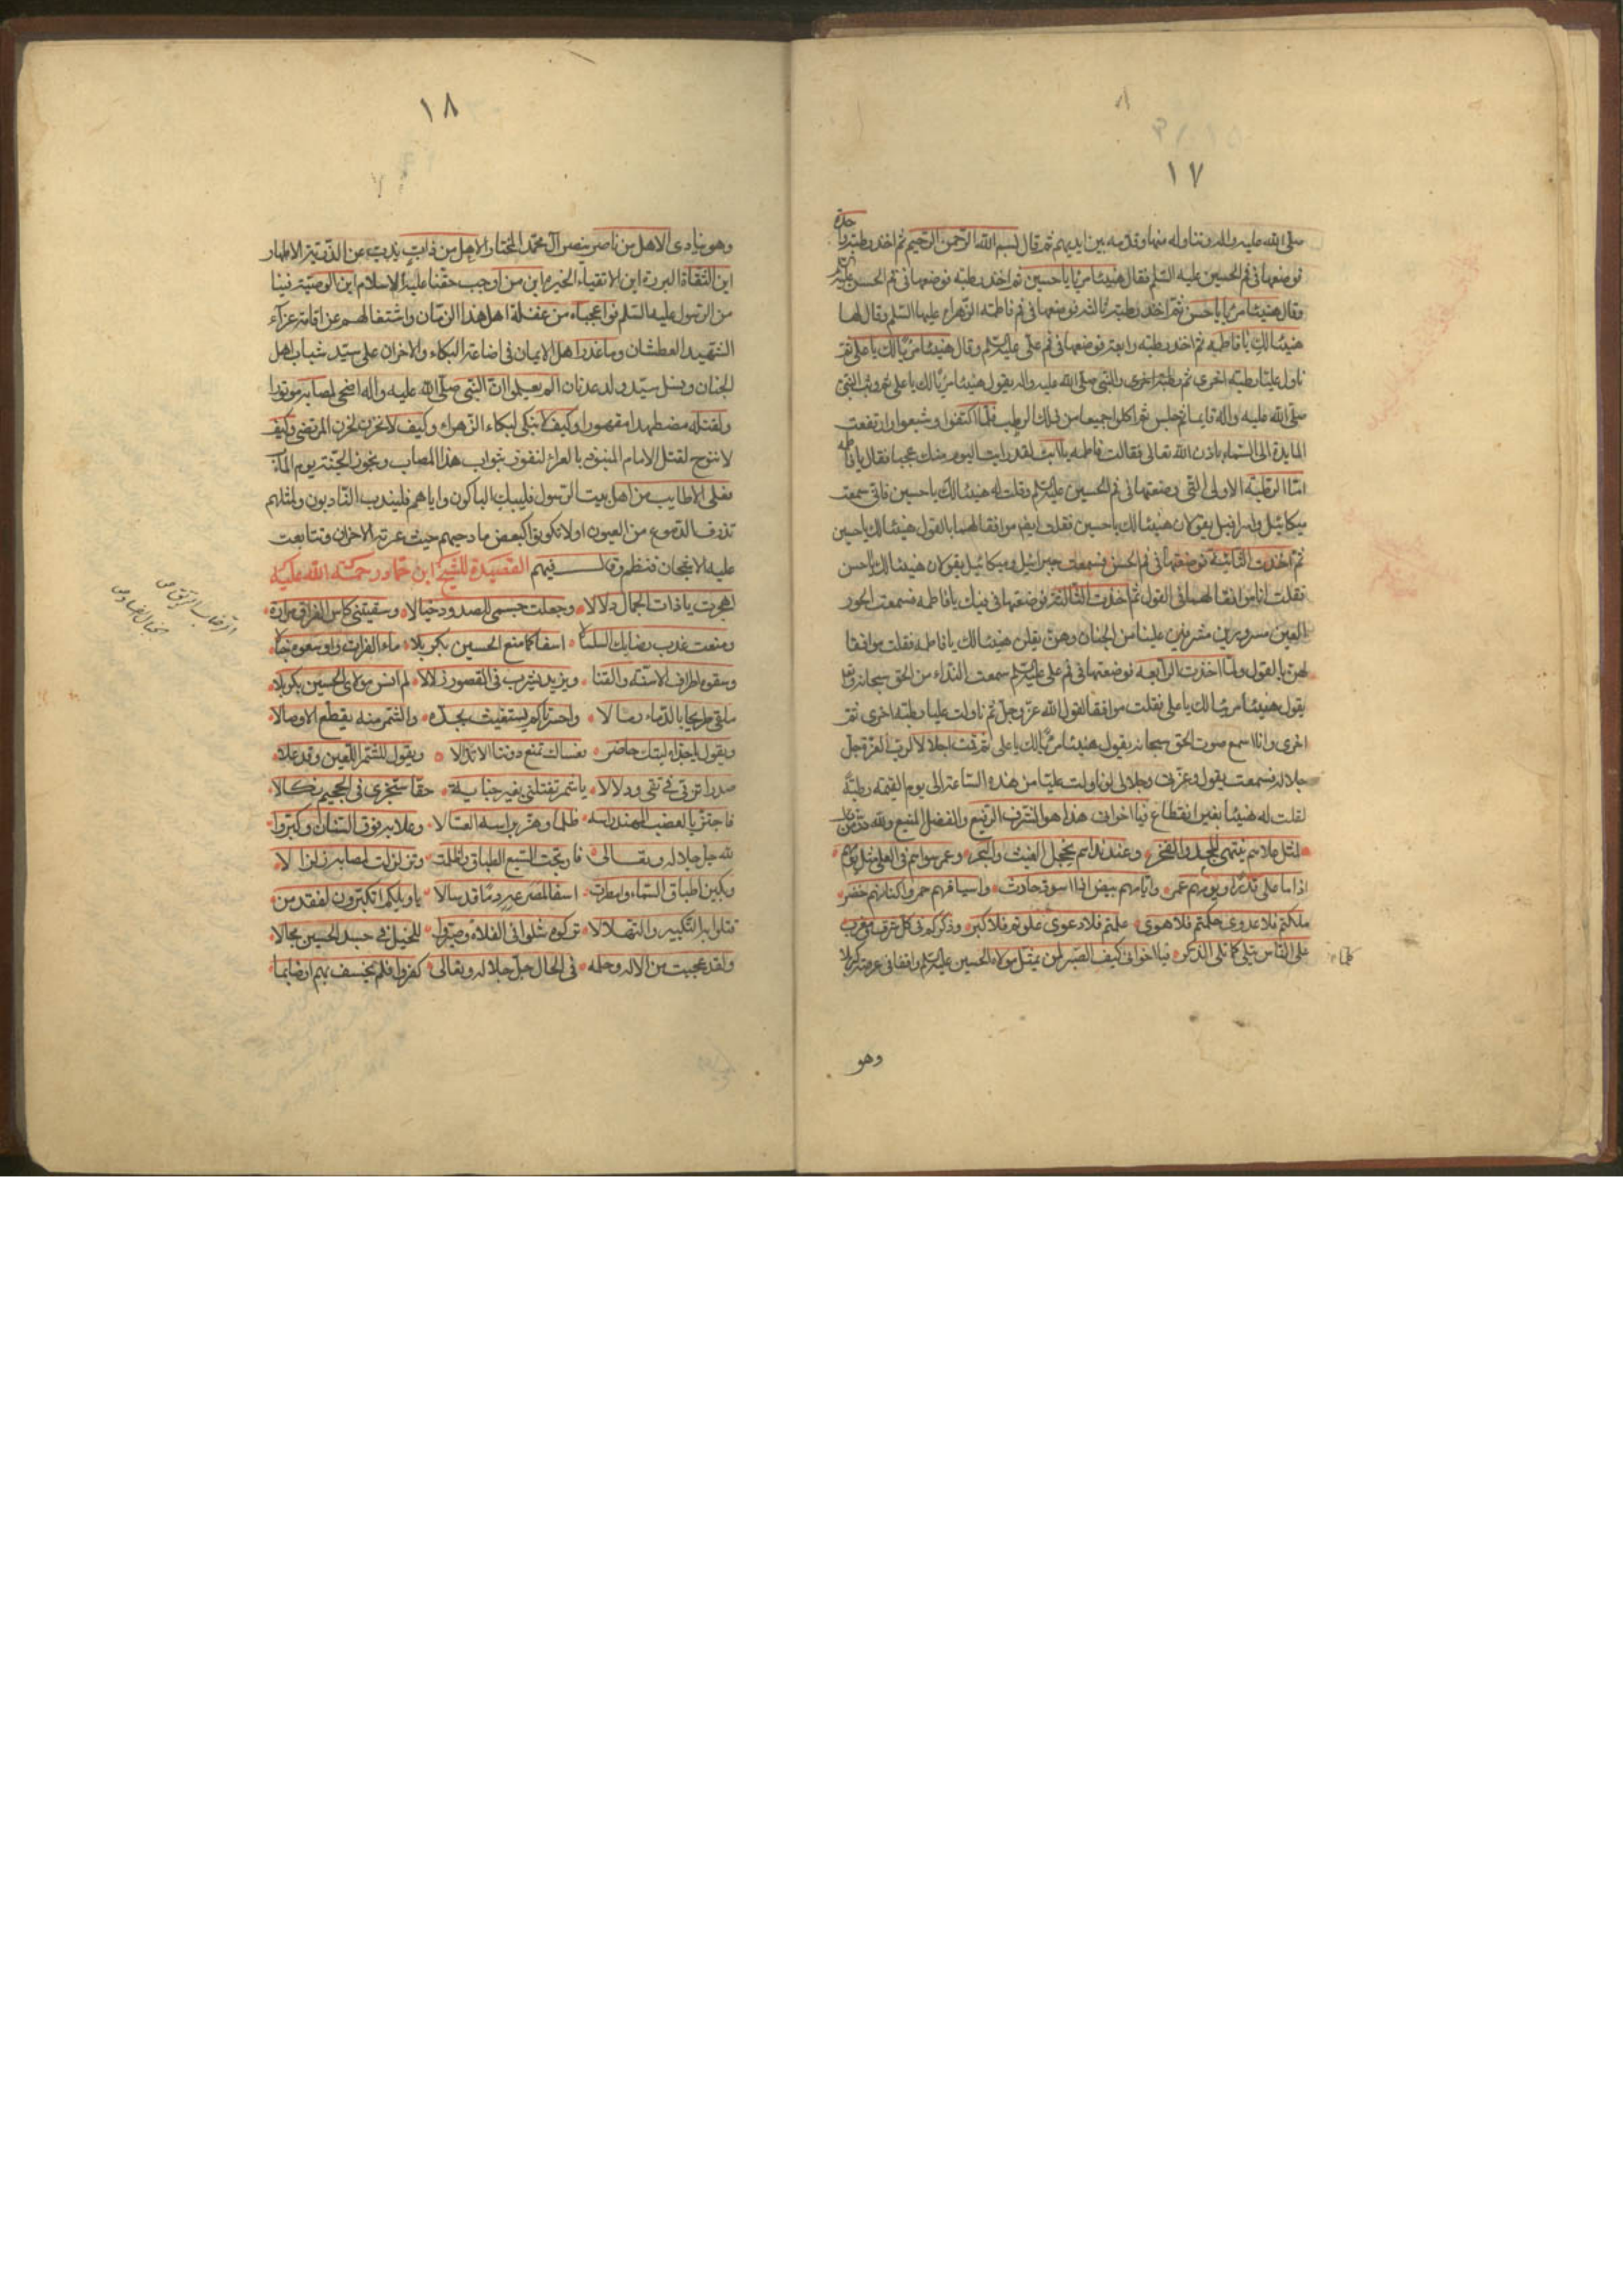 ١٧
صلى الله عليه واله وتناوله منها وقدمه بين ايديهم ثم قال بسم الله الرحمن الرحيم ثم اخذ رطبة واحدة
فوضعها فى فم الحسين عليه السلم فقال هنيئا مريا يا حسين ثم اخذ رطبة فوضعها فى فم الحسن عليه السلم
وقال هنيئا مريا يا حسن ثم اخذ رطبة ثالثة فوضعها فى فم فاطمة الزهراء عليها السلم وقال لها
هنيئا لك يا فاطمه ثم اخذ رطبة رابعة فوضعها فى فم على عليه السلم وقال هنيئا مريا لك يا على ثم
ناول عليا رطبة اخرى ثم رطبة اخرى والنبى صلى الله عليه واله يقول هنيئا مريا لك يا على ثم وثب النبى
صلى الله عليه واله قايما ثم جلس ثم اكلوا جميعا من ذلك الرطب فلما اكتفوا وشبعوا ارتفعت
المايدة الى السماء باذن الله تعالى فقالت فاطمه يا ابت لقد رايت اليوم منك عجبا فقال يا فاطمه
اما الرطبة الاولى التى وضعتها فى فم الحسين عليه السلم وقلت له هنيئا لك يا حسين فانى سمعت
ميكائيل واسرافيل يقولان هنيئا لك يا حسين فقلت ايضا موافقا لهما بالقول هنيئا لك يا حسين
ثم اخذت الثانية فوضعتها فى فم الحسن فسمعت جبرائيل وميكائيل يقولان هنيئا لك يا حسن
فقلت انا موافقا لهما فى القول ثم اخذت الثالثة فوضعتها فى فيك يا فاطمه فسمعت الحور
العين مسرورين مشرفين علينا من الجنان وهن يقلن هنيئا لك يا فاطمه فقلت موافقا
لهن بالقول ولما اخذت الرابعه فوضعتها فى فم على عليه السلم سمعت النداء من الحق سبحانه وتعالى
يقول هنيئا مريا لك يا على فقلت موافقا لقول الله عز وجل ثم ناولت عليا رطبة اخرى ثم
اخرى وانا اسمع صوت الحق سبحانه يقول هنيئا مريا لك يا على ثم قمت اجلالا لرب العزة جل
جلاله فسمعته يقول وعزتى وجلالى لو ناولت عليا من هذه الساعة الى يوم القيمه رطبة
لقلت له هنيئا بغير انقطاع فيا اخوانى هذا هو الشرف الرفيع والفضل المنيع ولله در من قال
اذا ما على قدرا ويومهم عمر وايامهم بيض اذا اسود حادث واسيافهم حمر واكنافهم خضر
ملكتم فلا عدوى حكمتم فلا هوى علمتم فلا دعوى علوتم فلا كبر وذكركم فى كل شرق ومغرب
على الناس يتلى كلما تلى الذكر فيا اخوانى كيف الصبر لمن يمثل مولاه الحسين عليه السلم واقفا فى عرصة كربلا
كلما
وهو
١٨
وهو ينادى الا هل من ناصر ينصر آل محمد المختار الا هل من ذاب يذب عن الذرية الاطهار
اين الثقاة البررة اين الاتقياء الخيرة اين من اوجب حقنا عليه الاسلام اين الوصية فينا
من الرسول عليه السلم فوا عجباه من غفلة اهل هذا الزمان واشتغالهم عن اقامة عزاء
الشهيد العطشان وما عذر اهل الايمان فى اضاعة البكاء والاحزان على سيد شباب اهل
الجنان ونسل سيد ولد عدنان الم يعلموا ان النبى صلى الله عليه واله اضحى لمصابه موتورا
ولقتله مضطهدا مقهورا وكيف لا نبكى لبكاء الزهراء وكيف لا نحزن لحزن المرتضى وكيف
لا ننوح لقتل الامام المنبوذ بالعراء لنفوز بثواب هذا المصاب ونجوز الجنة يوم المآب
فعلى الاطايب من اهل بيت الرسول فليبك الباكون واياهم فليندب النادبون ولمثلهم
تذرف الدموع من العيون اولا تكونوا كبعض مادحيهم حيث عرته الاحزان وتتابعت
عليه الاشجان فنظم وقال فيهم القصيدة للشيخ ابن حماد رحمة الله عليه
اهجرت يا ذات الجمال دلالا وجعلت جسمى للصدود خيالا وسقيتنى كاس الفراق مرارة
ومنعت عذب رضابك السلسالا اسفا كما منع الحسين بكربلا ماء الفرات واوسعوه خبالا
وسقوه اطراف الاسنة والقنا ويزيد يشرب فى القصور زلالا لم انس مولاى الحسين بكربلا
ملقى طريحا بالدماء رمالا واحسرتا كم يستغيث بجده والشمر منه يقطع الاوصالا
ويقول يا جداه ليتك حاضر فعساك تمنع دوننا الانذالا ويقول للشمر اللعين وقد علا
صدرا تربى فى تقى ودلالا يا شمر تقتلنى بغير جناية حقا ستجزى فى الجحيم نكالا
فاجتز بالعضب المهند راسه ظلما وهز براسه العسالا وعلا به فوق السنان وكبروا
لله جل جلاله وتعالى فارتجت السبع الطباق واظلمت وتزلزلت لمصابه زلزالا
وبكين اطباق السماء وامطرت اسفا لمصرعه دما قد سالا يا ويلكم اتكبرون لفقد من
قتلوا به التكبير والتهلالا تركوه شلوا فى الفلاة وصيروا للخيل فى جسد الحسين مجالا
ولقد عجبت من الاله وحلمه فى الحال جل جلاله وتعالى كفروا فلم يخسف بهم ارضا بما